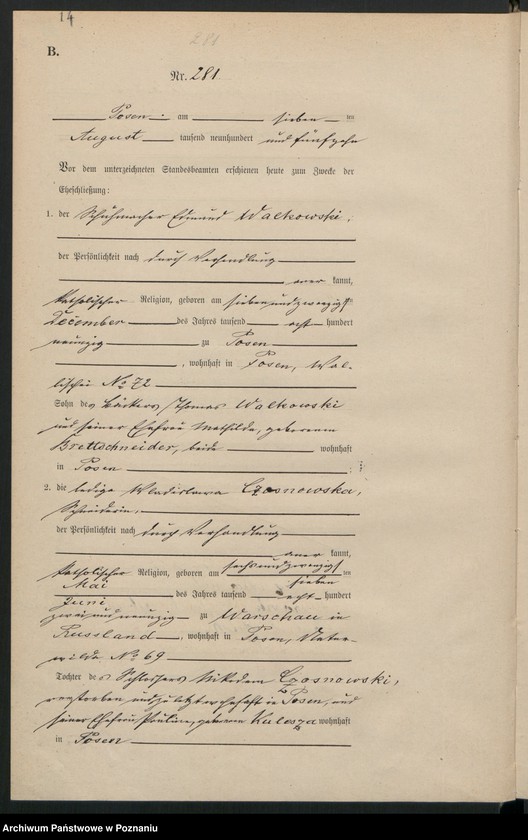 14
281
B.
Nr. 281
Posen am sieben ten
August tausend neunhundert und fünfzehn
Vor dem unterzeichneten Standesbeamten erschienen heute zum Zwecke der
Eheschließung:
1. der Schuhmacher Edmund Walkowski,
der Persönlichkeit nach durch Verhandlung
aner kannt,
katholischer Religion, geboren am siebenundzwanzigsten
December des Jahres tausend acht hundert
neunzig zu Posen
, wohnhaft in Posen, Wal-
lischei No 72
Sohn des Bäckers Thomas Walkowski
und seiner Ehefrau Mathilde, geborenen
Brettschneider, beide wohnhaft
in Posen
2. die ledige Wladislawa Czosnowska,
Schneiderin,
der Persönlichkeit nach durch Verhandlung
aner kannt,
katholischer Religion, geboren am sechsundzwanzigsten
Mai sieben ten
des Jahres tausend acht hundert
Juni
zweiundneunzig zu Warschau in
Russland, wohnhaft in Posen, Unter-
wilda No 69
Tochter des Schlossers Nikodem Czosnowski,
verstorben und zuletzt wohnhaft in Posen, und
seiner Ehefrau Pauline, geborenen Kulesza wohnhaft
in Posen
Archiwum Państwowe w Poznaniu